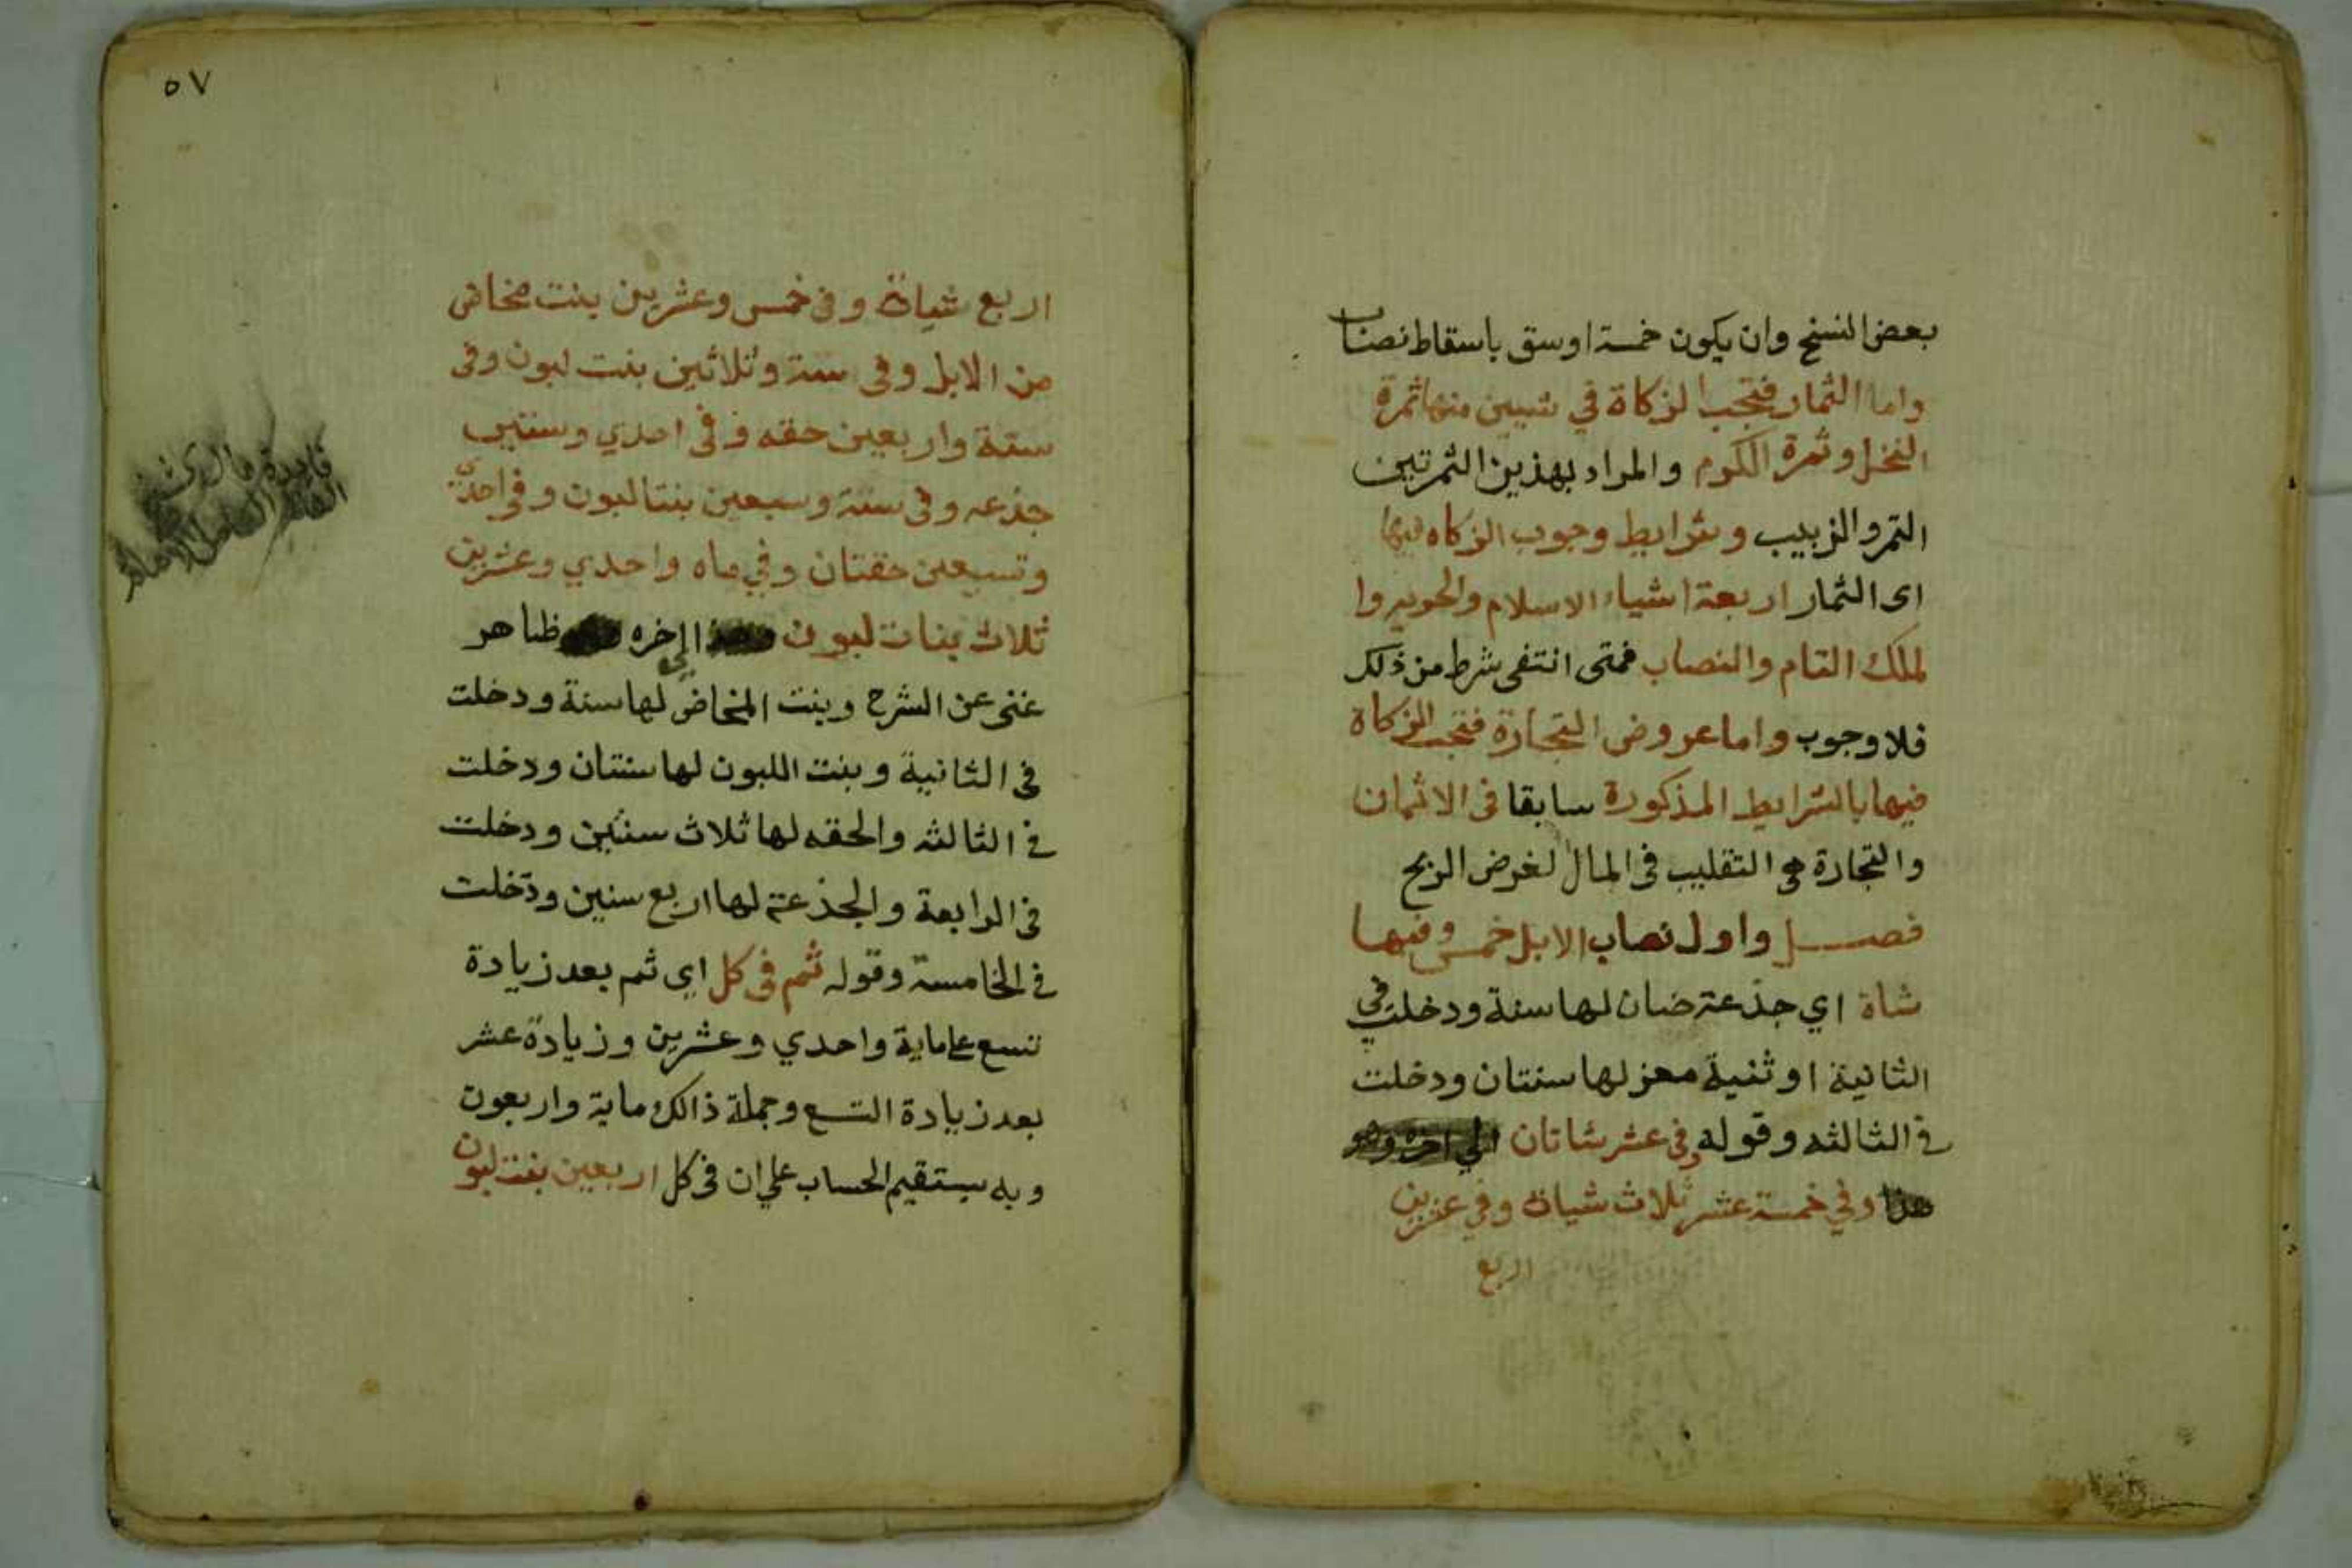 بعض النسخ وان يكون خمسة اوسق باسقاط نصاب
واما الثمار فتجب الزكاة في شيين منها ثمرة
النخل وثمرة الكروم والمراد بهذين الثمرتين
التمر والزبيب وشرايط وجوب الزكاه فيها
اى الثمار اربعة اشياء الاسلام والحريه وا
لملك التام والنصاب فمتى انتفى شرط من ذلك
فلا وجوب واما عروض التجارة فتجب الزكاة
فيها بالشرايط المذكورة سابقا فى الاثمان
والتجارة هي التقليب فى المال لغرض الربح
فصل واول نصاب الابل خمس وفيها
شاة اي جذعة ضان لها سنة ودخلت في
الثانية او ثنية معز لها سنتان ودخلت
في الثالثه وقوله وفي عشر شاتان الي اخره وهو
هذا وفي خمسة عشر ثلاث شياة وفي عشرين
اربع
٥٧
اربع شياة وفى خمس وعشرين بنت مخاض
من الابل وفى ستة وثلاثين بنت لبون وفى
ستة واربعين حقه وفى احدي وستين
جذعه وفى ستة وسبعين بنتا لبون وفى احدي
وتسعين حقتان وفي ماه واحدي وعشرين
ثلاث بنات لبون الي اخره ظاهر
غنى عن الشرح وبنت المخاض لها سنة ودخلت
فى الثانية وبنت اللبون لها سنتان ودخلت
في الثالثه والحقه لها ثلاث سنين ودخلت
فى الرابعة والجذعة لها اربع سنين ودخلت
في الخامسة وقوله ثم فى كل اي ثم بعد زيادة
تسع علي ماية واحدي وعشرين وزيادة عشر
بعد زيادة التسع وجملة ذالك ماية واربعون
وبه يستقيم الحساب علي ان فى كل اربعين بنت لبون